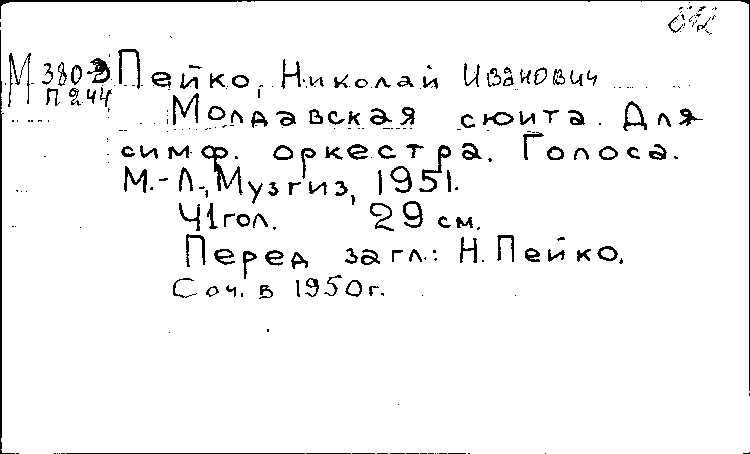 М 380-3 Пейко, Николай Иванович
П 244
Молдавская сюита. Для
симф. оркестра. Голоса.
М.-Л., Музгиз, 1951.
41гол. 29 см.
Перед загл.: Н. Пейко.
Соч. в 1950г.